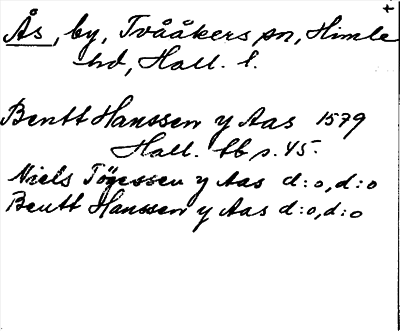 Ås, by, Tvååkers sn, Himle
hd, Hall. l.
Bentt Hanssen y Aas 1579
Hall. tb s. 45.
Niels Tögessen y Aas d:o, d:o
Bentt Hanssen y Aas d:o, d:o